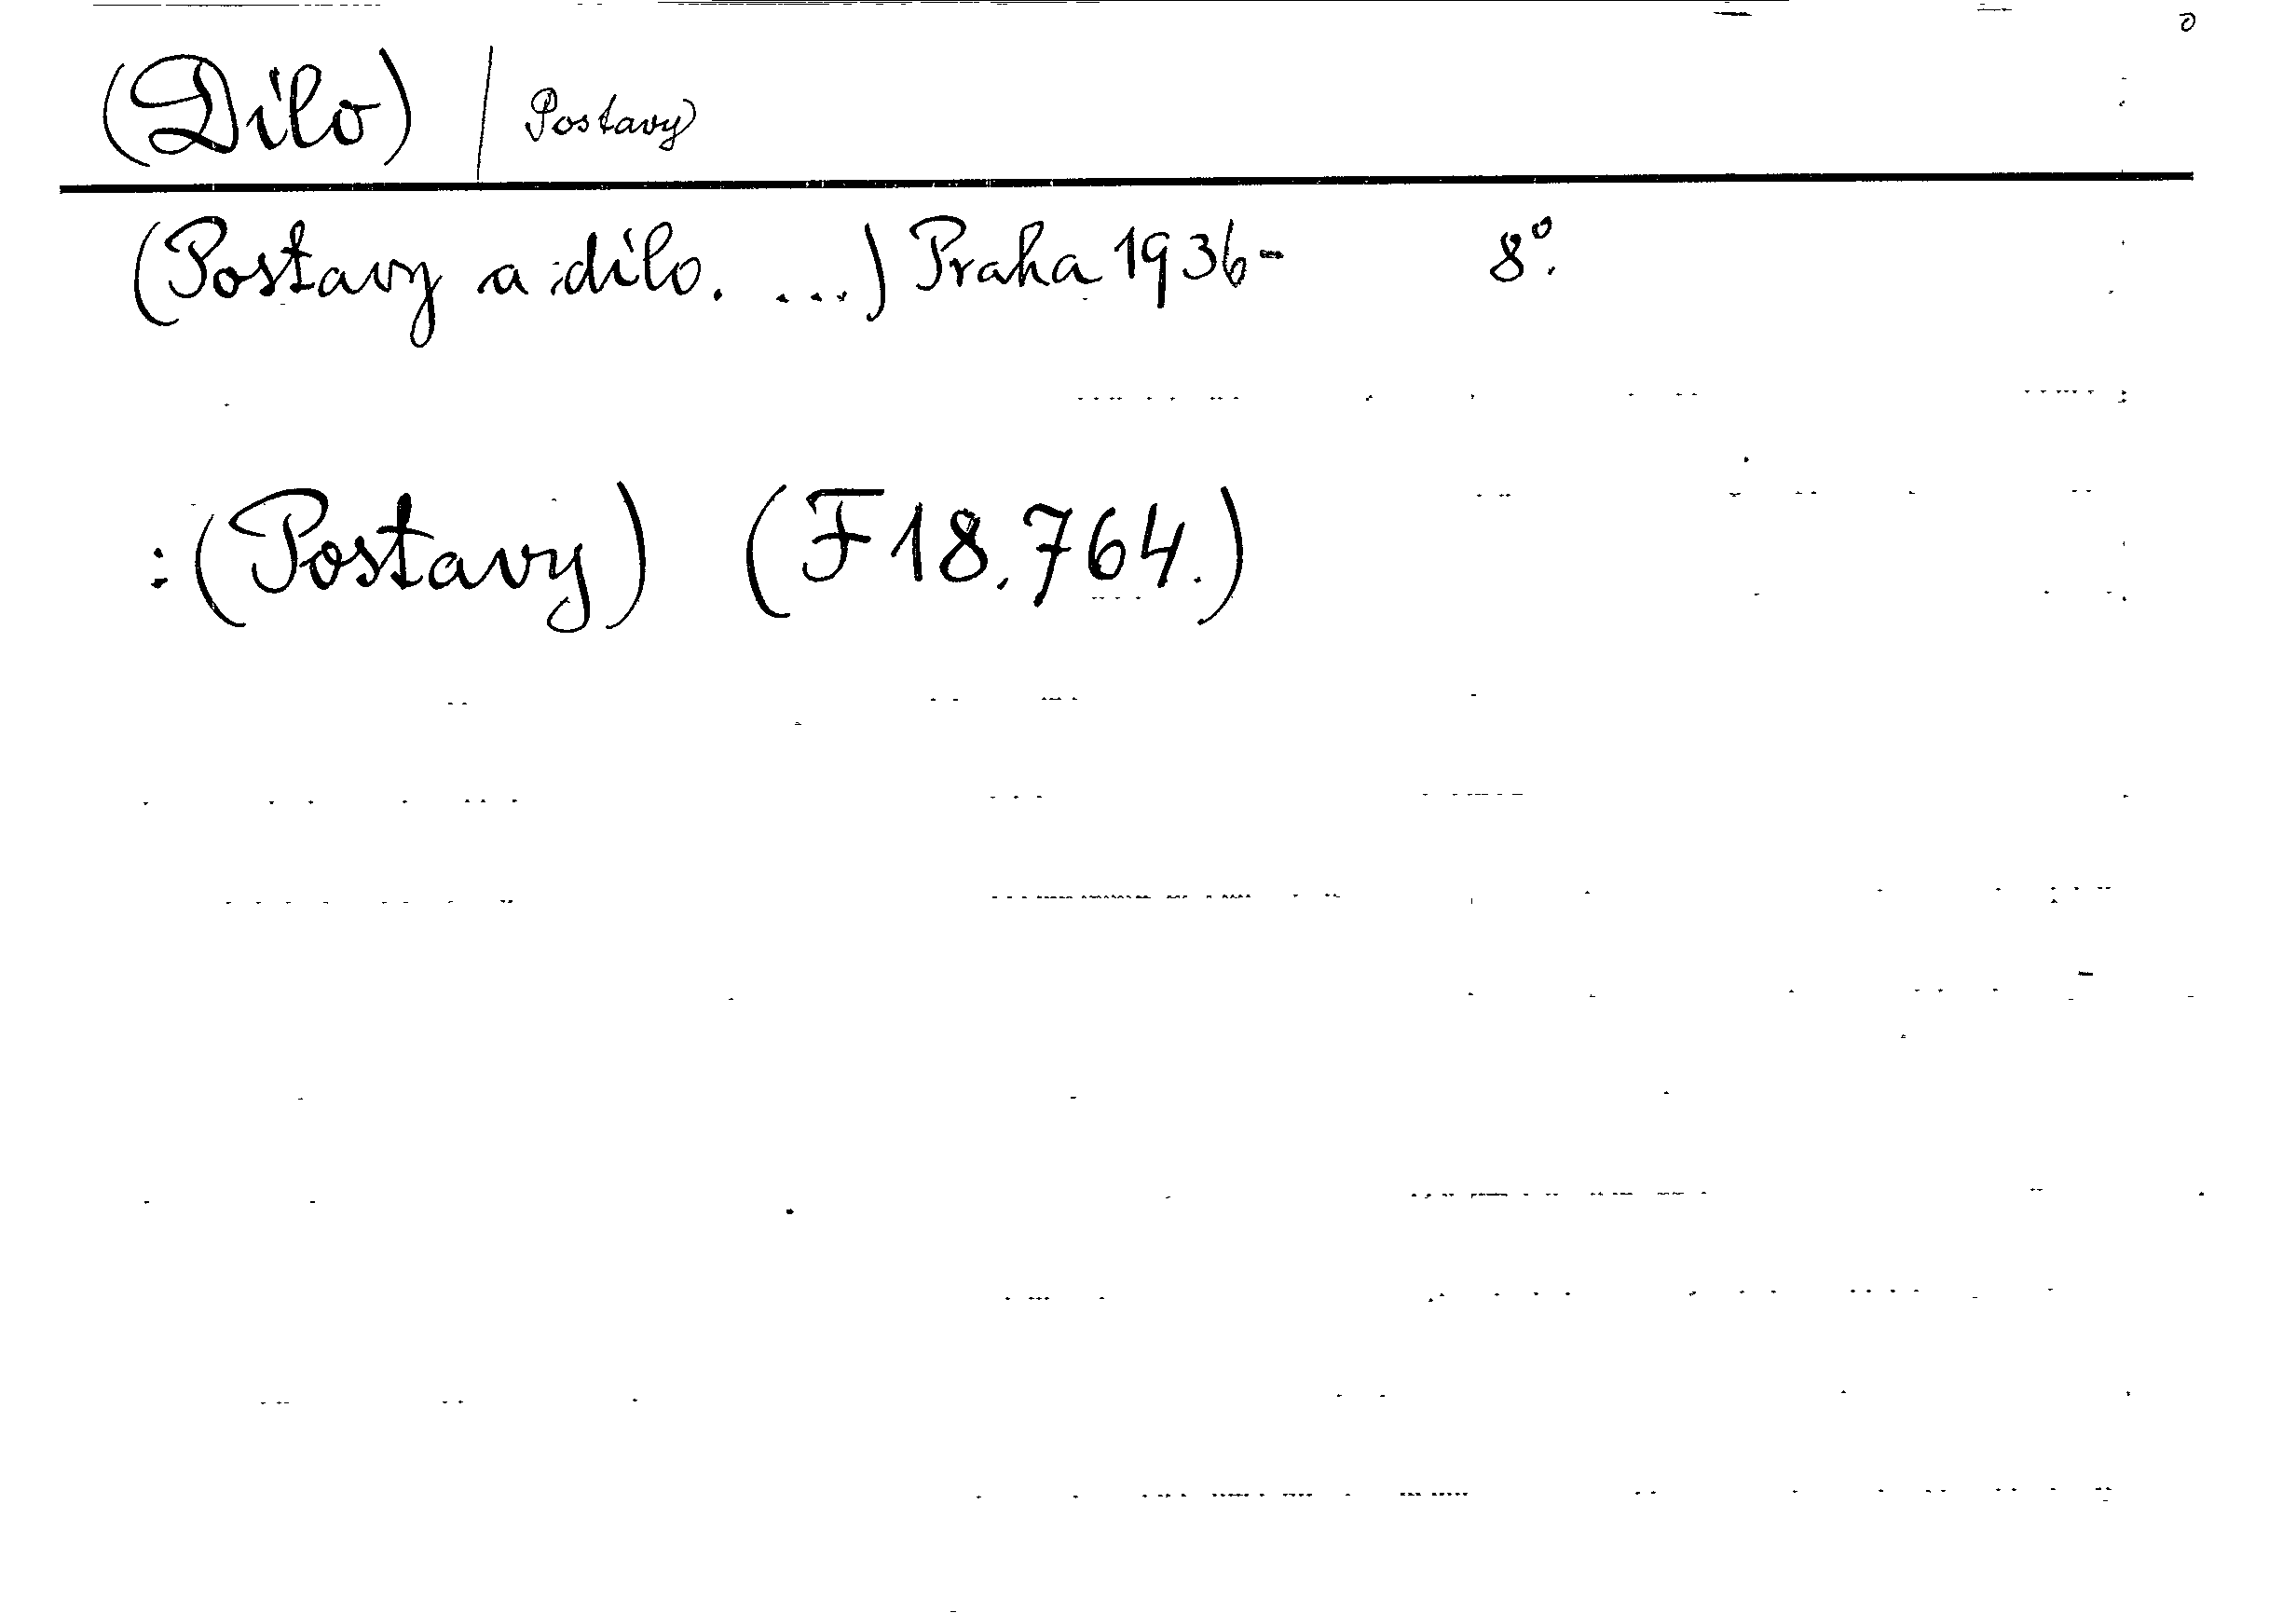 (Dílo) | Postavy
(Postavy a dílo. ...) Praha 1936- 8°.
:(Postavy) (F18.764.)